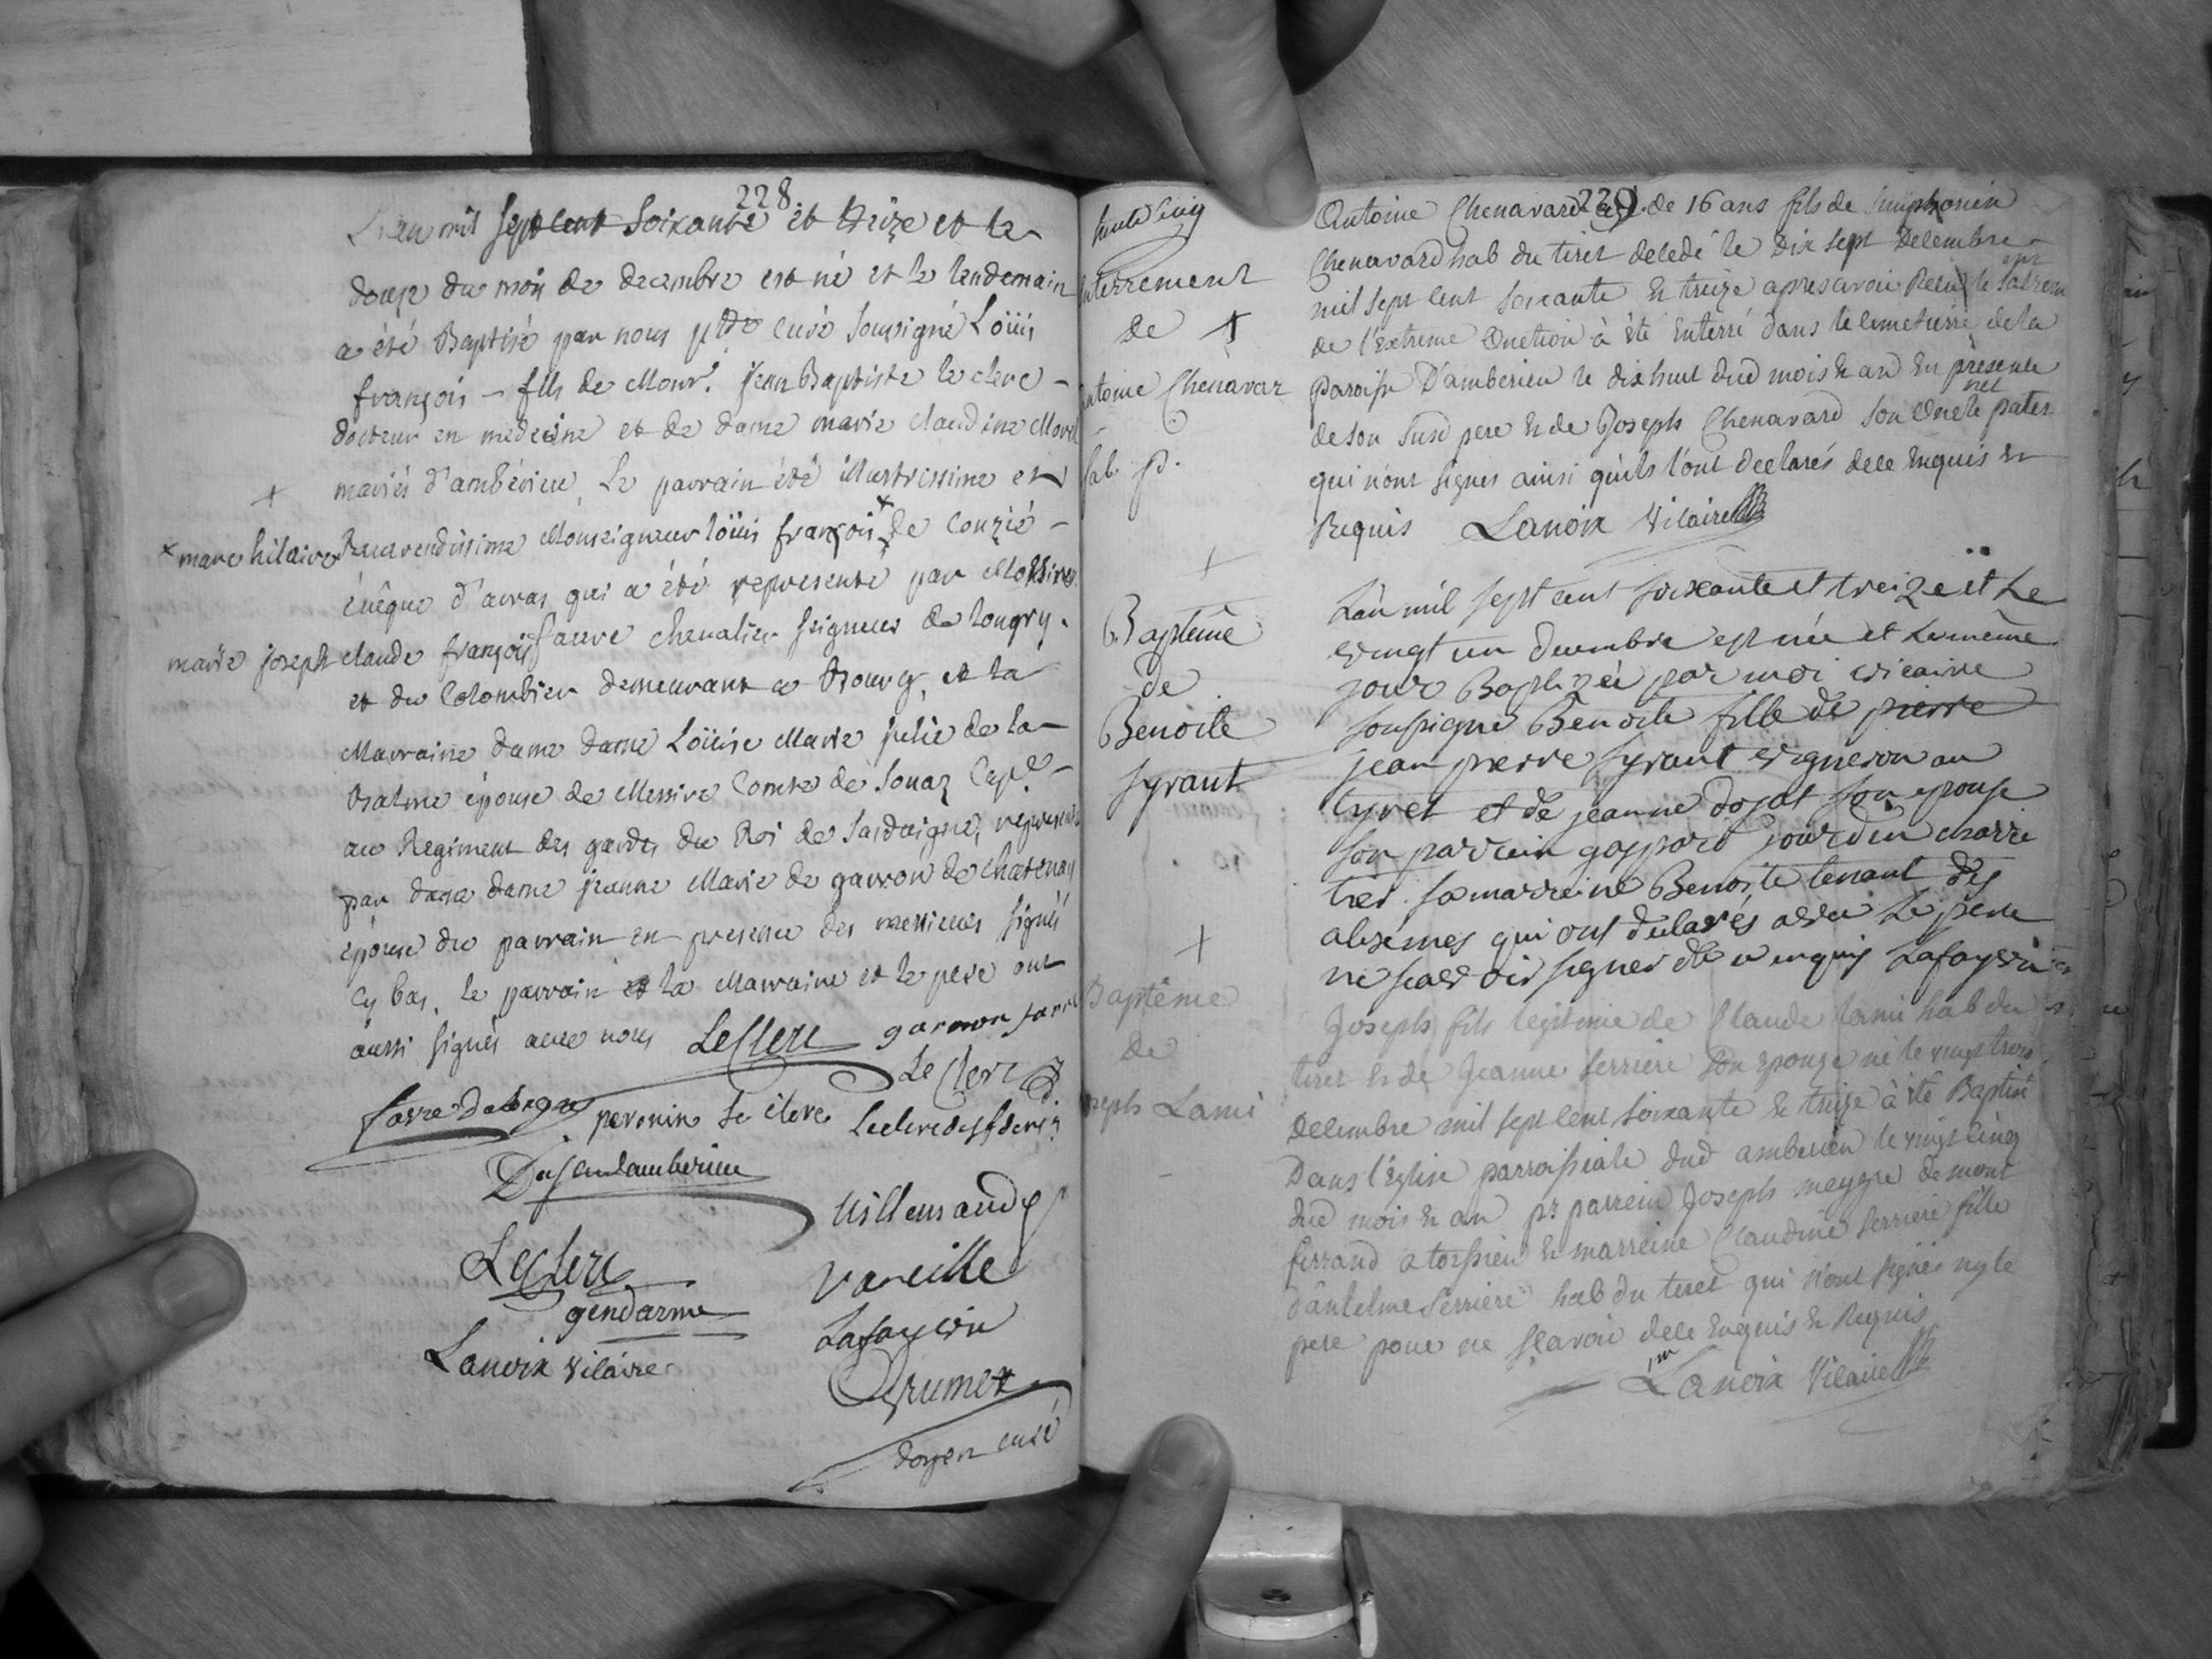 228.
L'an mil sept cent soixante et treize et le
douze du mois de decembre est né et le lendemain
a été Baptisé par nous ptre curé soussigné Loüis
françois – fils de Monr. jean Baptiste le clerc –
docteur en medecine et de dame marie claudine Morel
mariés d'ambérieu. Le parrain été illustrissime et
+
× marc hilaire
Reverendissime Monseigneur loüis françois × de Conzié –
évêque d'arras qui a été representé par Messire
marie joseph
claude françois favre chevalier seigneur de longry.
et du Colombier demeurant a Bourg, et la
Marraine dame dame Loüise Marie julie de la
balme épouse de Messire Comte de Sonaz Cape
au Regiment des gardes du Roi de Sardaigne, representée
par dame dame jeanne Marie de garron de chatenay
épouse du parrain en presence des messieurs signés
cy bas. le parrain et la Marraine et le pere ont
aussi signés avec nous LeClerc garron favre
Le Clerc
favre De Longry peronin le clerc
Leclerc
gendarme
Vareille
Lanoix Vilaire
Lafay
Grumet
doyen curé
229
cinq
enterrement
de +
antoine Chenavar
hab. p.
Antoine Chenavard agé de 16 ans fils de Simphonin
Chenavard hab du tiret decedé le Dix sept Decembre
mil sept cent soixante & treize apres avoir Reçu le sacrem
ent
de l'extreme Onction à été enterré dans le cimetierre de la
paroisse D'amberieu le dix huit dud mois & an En presence
de son susd pere & de Joseph Chenavard son Oncle pater
nel
qui n'ont signes ainsi qu'ils l'ont declarés de ce enquis &
Requis Lanoix Vilaire
+
Baptême
de
Benoite
syrant
L'an mil sept cent soixante et treize et Le
vingt un decembre est née et Le même
jour Baptizée par moi vicaire
soussigné Benoite fille de pierre
jean pierre syrant vigneron au
tyret et de jeanne dojat son epouse
son parrein gaspard jourdin charre
tier. sa marreine Benoite tenant des
abzemes qui ont declarés avec Le pere
ne scavoir signer de ce enquis Lafay vic
+
Baptême
de
Joseph Lami
Joseph fils legitime de Claude Lami hab du
tiret & de Jeanne ferriere son epouse né le vingt trois
decembre mil sept cent soixante & treize à été Baptisé
Dans l'Eglise parroissiale dud amberieu le vingt cinq
dud mois & an pr. parrein Joseph meygre de mont
ferrand a torssieu & marreine Claudine ferriere fille
d'antelme ferriere hab du tiret qui n'ont signés ny le
pere pour ne sçavoir de ce Enquis & Requis
Lanoix Vilaire